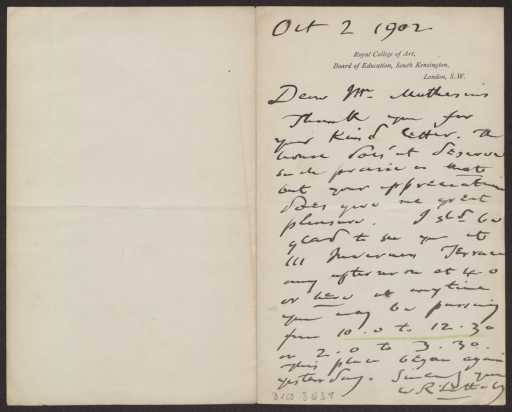 Oct 2 1902
Royal College of Art,
Board of Education, South Kensington,
London, S.W.
Dear Mr. Muthesius
Thank you for
your kind letter. The
house does't deserve
such praise as that
but your appreciation
does give me great
pleasure. I shd be
glad to see you at
111 Inverness Terrace
any afternoon at 4.0
or here at anytime
you may be passing
from 10.0 to 12.30
or 2.0 to 3.30.
This place began again
yesterday. Sincerely yours
W.R. Lethaby